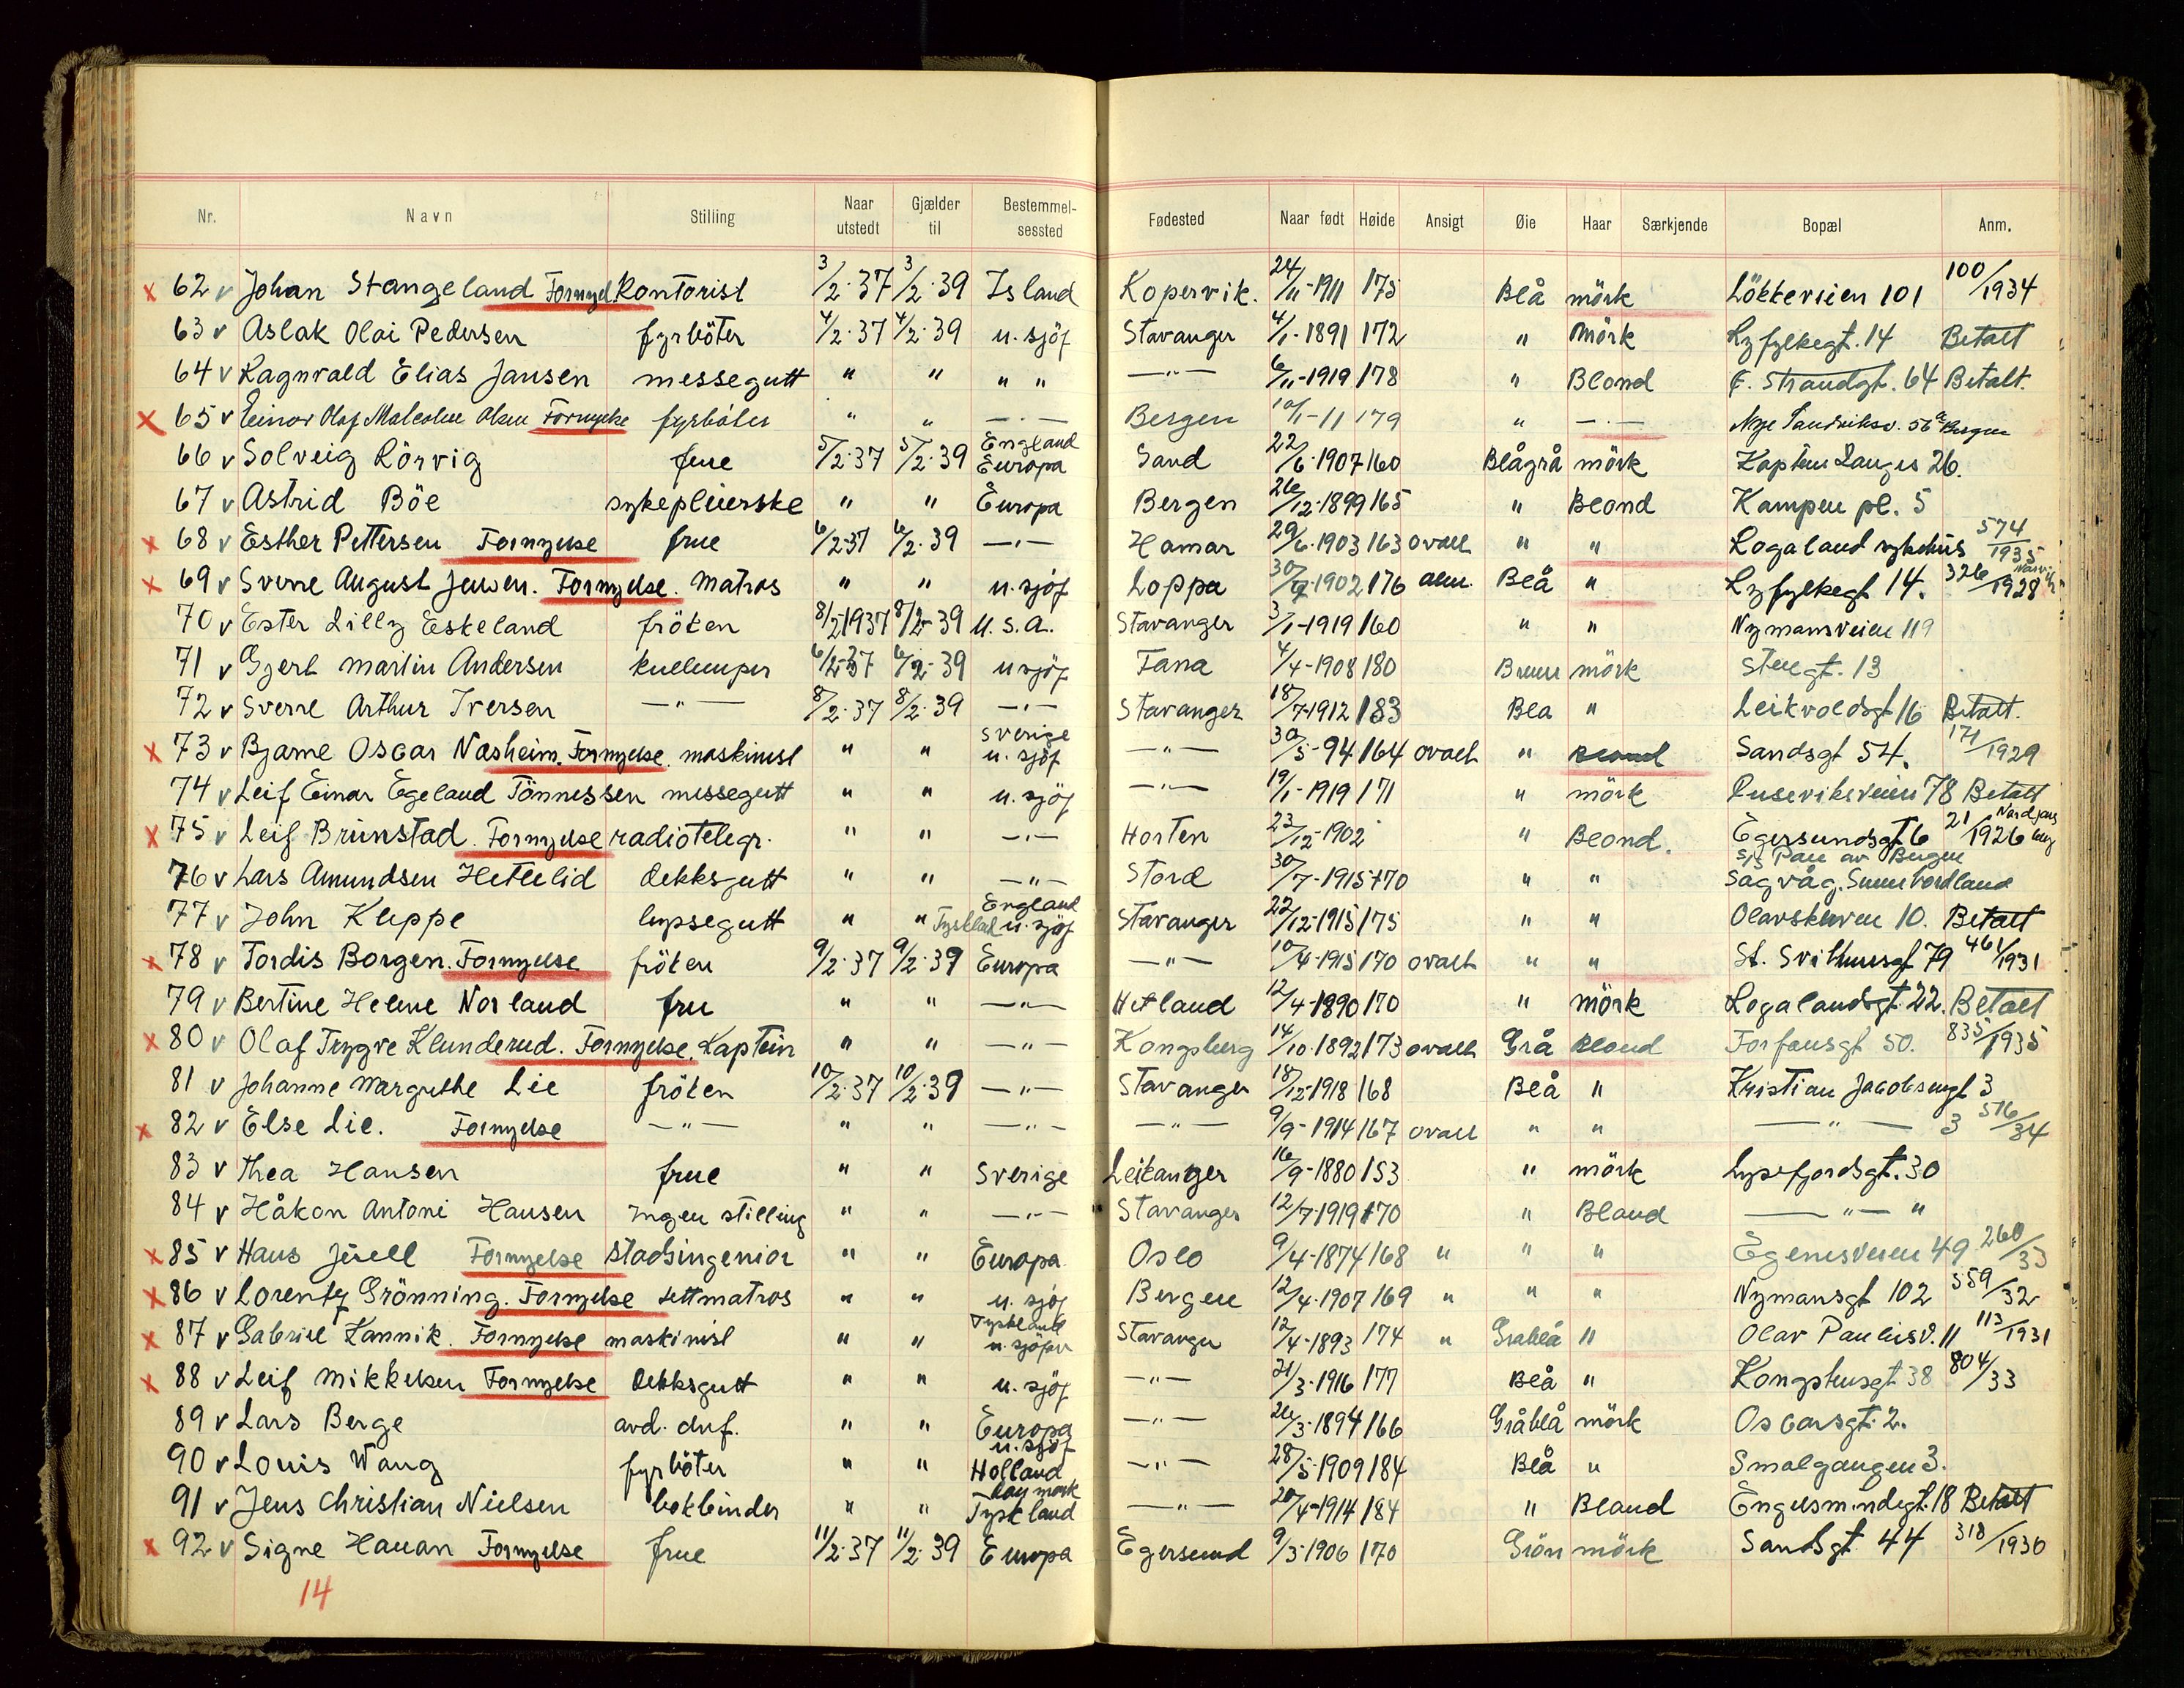 Nr. Navn Stilling Naar utstedt Gjælder til Bestemmelsessted Fødested Naar født Høide Ansigt Øie Haar Særkjende Bopæl Anm.
x 62 v Johan Stangeland Fornyel. Kontorist 3/2-37 3/2-39 Island Kopervik. 24/11-1911 175 Blå mörk Lökkeveien 101 100/1934
63 v Aslak Olai Pedersen fyrböter 4/2-37 4/2-39 u. sjöf Stavanger 4/1-1891 172 " mörk Ryfylkegt. 14 Betalt
64 v Ragnvald Elias Jansen messegutt " " " " —"— 6/11-1919 178 " Blond Ö. Strandgt. 64 Betalt.
x 65 v Einar Olaf Malcolm Olsen Fornyelse fyrböter " " —"— Bergen 10/1-11 179 " —"— Nye Sandviksv. 56a Bergen
66 v Solveig Rörvig frue 5/2-37 5/2-39 England Europa Sand 22/6-1907 160 Blågrå mörk Kaptein Langes 26.
67 v Astrid Böe sykepleierske " " Europa Bergen 26/12-1899 165 " Blond Kampen pl. 5
x 68 v Esther Pettersen Fornyelse frue 6/2-37 6/2-39 —"— Hamar 29/6-1903 163 ovalt " " Rogaland sykehus 574/1935
x 69 v Sverre August Jensen. Fornyelse. Matros " " u. sjöf Loppa 30/9-1902 176 alm. Blå " Ryfylkegt 14. 326/1928 Narvik
70 v Ester Lilly Eskeland fröken 8/2-1937 8/2-39 U.S.A. Stavanger 3/1-1919 160 " " Nymansveien 119
71 v Gjert Martin Andersen kullemper 6/2-37 6/2-39 u sjöf Fana 4/4-1908 180 Brun mörk Stengt. 13
72 v Sverre Arthur Iversen —"— 8/2-37 8/2-39 —"— Stavanger 18/7-1912 183 Blå " Leikvoldsgt 16 Betalt.
x 73 v Bjarne Oscar Næsheim. Fornyelse. maskinist " " Sverige u. sjöf —"— 30/5-94 164 ovalt " Blond Sandsgt 54. 171/1929
74 v Leif Einar Egeland Tönnessen messegutt " " u. sjöf —"— 19/1-1919 171 " mörk Buseviksveien 78 Betalt
x 75 v Leif Brunstad. Fornyelse radiotelegr. " " —"— Horten 23/12-1902 " Blond. Egersundsgt 6 21/1926
76 v Lars Amundsen Hetlelid dekksgutt " " —"— Stord 30/7-1915 170 " " S/S Pan av Bergen Sagvåg. Sunnhordland
77 v John Kleppe byssegutt " " England Tyskland u. sjöf Stavanger 22/12-1915 175 " " Olavskleven 10. Betalt
x 78 v Tordis Borgen. Fornyelse fröken 9/2-37 9/2-39 Europa —"— 10/4-1915 170 ovalt " " St. Svithunsgt 79 461/1931
79 v Bertine Helene Norland fru " " —"— Hetland 12/4-1890 170 " mörk Rogalandsgt. 22. Betalt
x 80 v Olaf Trygve Klunderud. Fornyelse. Kaptein " " —"— Kongsberg 14/10-1892 173 ovalt Grå Blond Torfæusgt 50. 835/1935
81 v Johanne Margrethe Lie fröken 10/2-37 10/2-39 —"— Stavanger 18/12-1918 168 Blå " Kristian Jacobsensgt 3
x 82 v Else Lie. Fornyelse —"— " " —"— —"— 9/9-1914 167 ovalt " " —"— 3 516/34
83 v Thea Hansen frue " " Sverige Leikanger 16/9-1880 153 " mörk Lysefjordsgt. 30
84 v Håkon Antoni Hansen Ingen stilling " " —"— Stavanger 12/7-1919 170 " Blond —"— "
x 85 v Hans Juell Fornyelse stadsingeniør " " Europa Oslo 9/4-1874 168 " " " Egenesveien 49 260/33
x 86 v Lorentz Grönning. Fornyelse lettmatros " " u. sjöf Bergen 12/4-1907 169 " " " Nymansgt 102 559/32
x 87 v Gabriel Kannik. Fornyelse maskinist " " Tyskland u. sjöfa Stavanger 12/4-1893 174 " Gråblå " Olav Paulisv. 11 113/1931
x 88 v Leif Mikkelsen Fornyelse dekksgutt " " u. sjöf —"— 21/3-1916 177 Blå " Kongshusgt 38 804/33
89 v Lars Berge avd. chef. " " Europa —"— 26/3-1894 166 Gråblå mörk Oscarsgt. 2.
90 v Louis Wang fyrböter " " u. sjöf Holland —"— 28/5-1909 184 Blå " Smalgangen 3.
91 v Jens Christian Nielsen bokbinder " " Danmark Tyskland —"— 20/4-1914 184 " Blond Engelsmindegt. 18 Betalt
x 92 v Signe Hauan Fornyelse frue 11/2-37 11/2-39 Europa Egersund 9/3-1906 170 Grön mörk Sandsgt 44 318/1930
14